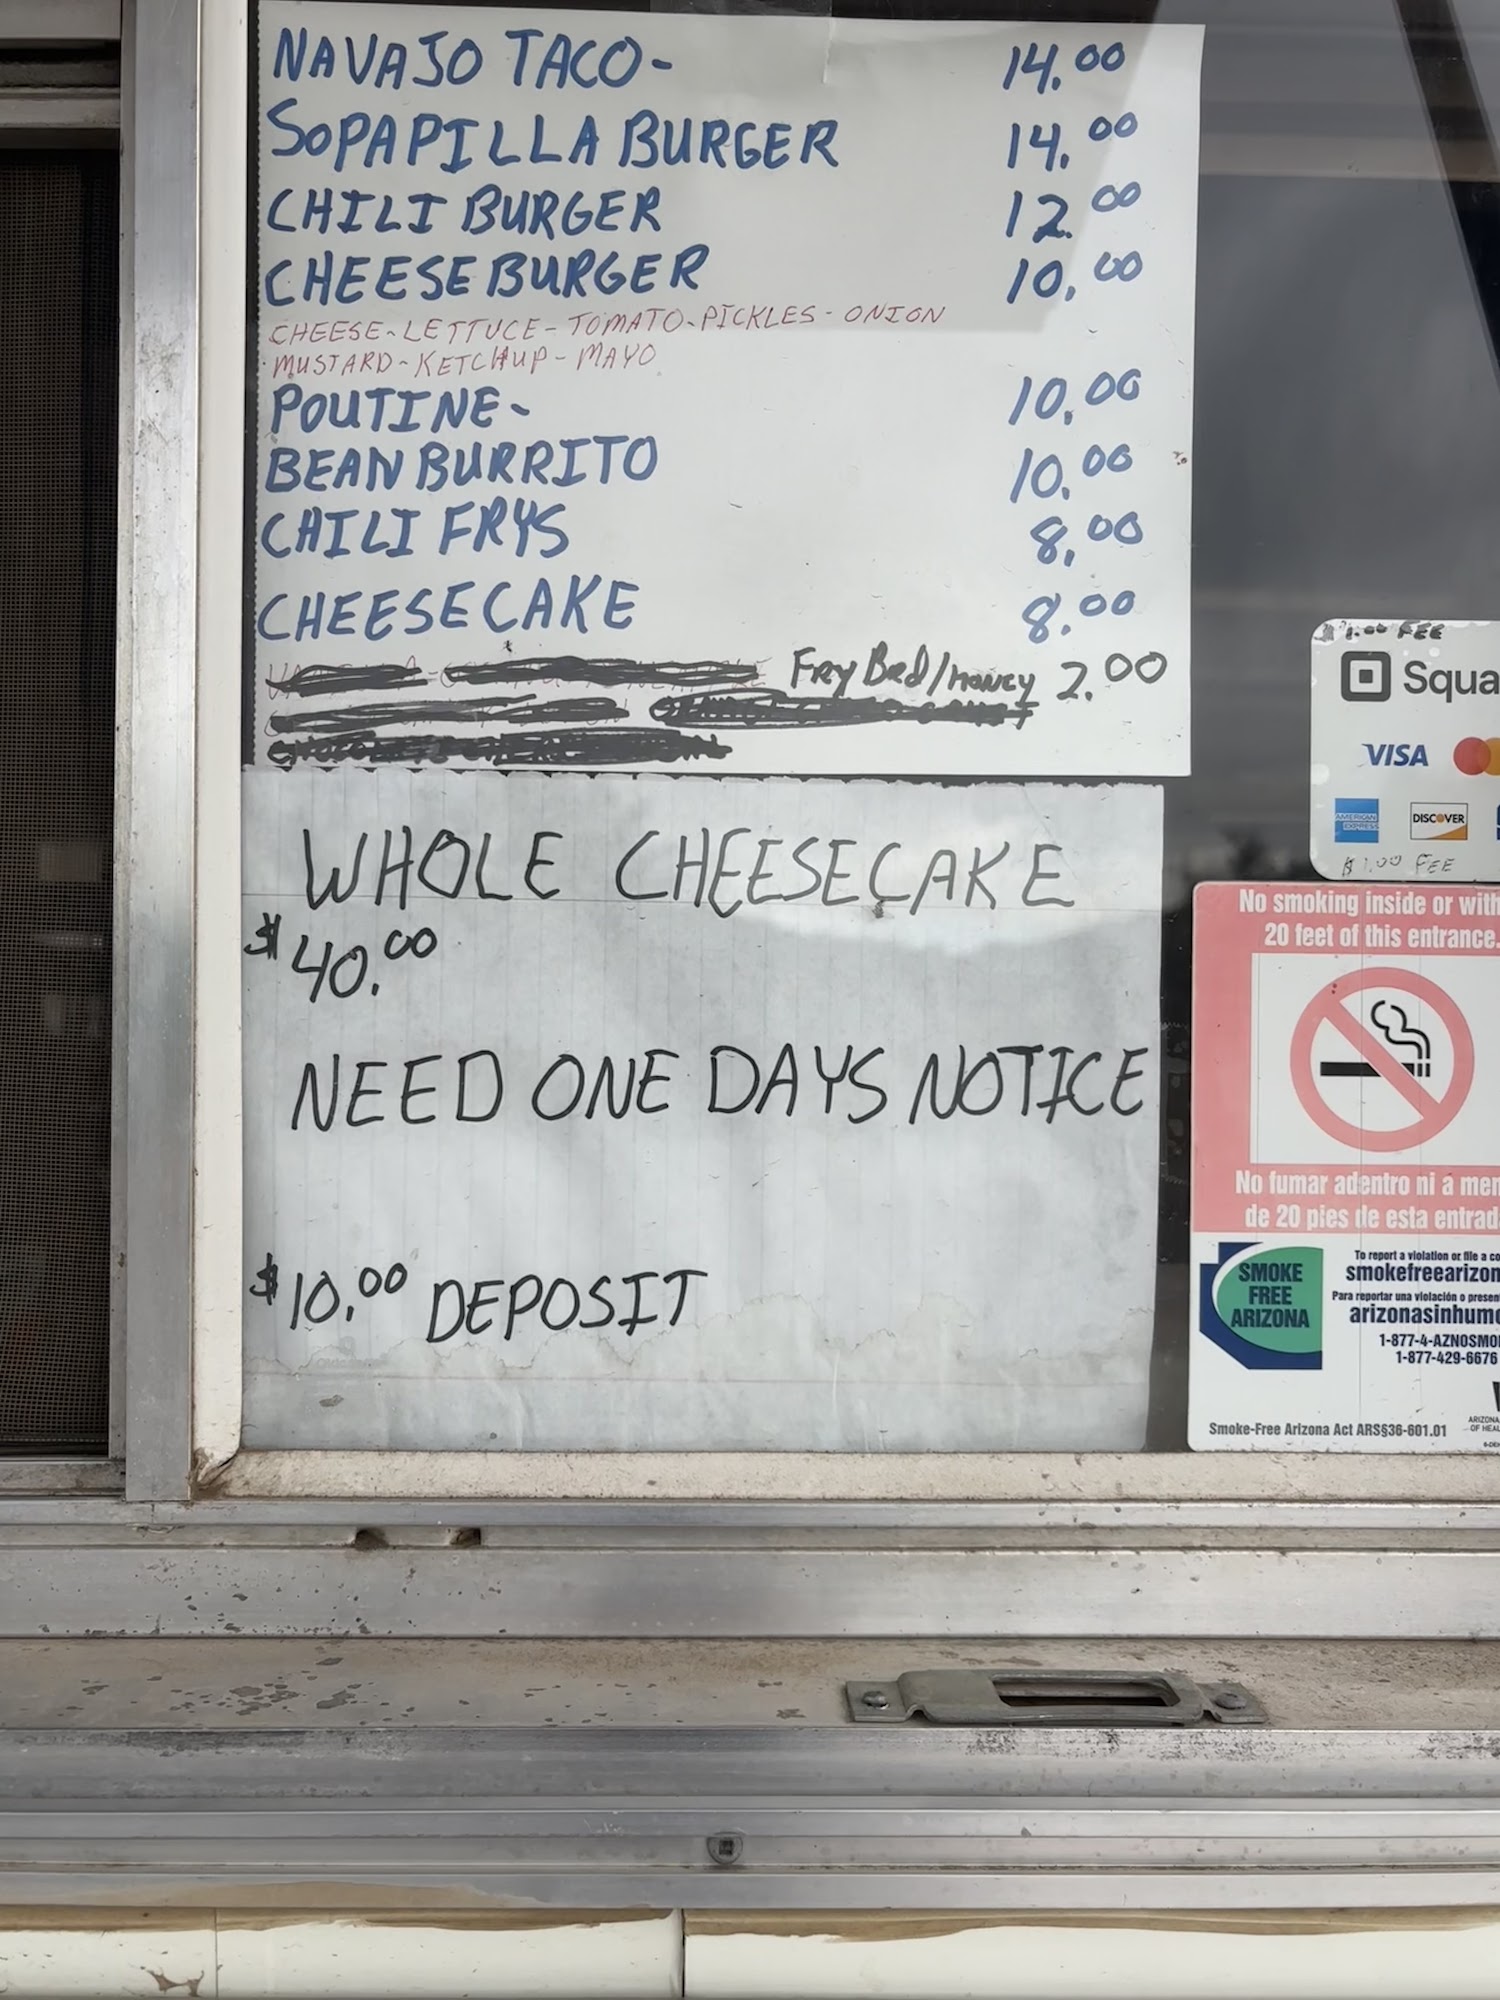 NAVAJO TACO- 14.00
SOPAPILLA BURGER 14.00
CHILI BURGER 12.00
CHEESE BURGER 10.00
CHEESE-LETTUCE-TOMATO-PICKLES-ONION
MUSTARD-KETCHUP-MAYO
POUTINE- 10.00
BEAN BURRITO 10.00
CHILI FRYS 8.00
CHEESECAKE 8.00
Fry Bred/Honey 2.00
WHOLE CHEESECAKE
$40.00
NEED ONE DAYS NOTICE
$10.00 DEPOSIT
$1.00 FEE
Squa
VISA
AMERICAN EXPRESS
DISCOVER
$1.00 FEE
No smoking inside or with
20 feet of this entrance.
No fumar adentro ni a men
de 20 pies de esta entrad
SMOKE
FREE
ARIZONA
To report a violation or file a co
smokefreearizon
Para reportar una violación o presen
arizonasinhumo
1-877-4-AZNOSMO
1-877-429-6676
ARIZONA
OF HEAL
Smoke-Free Arizona Act ARS§36-601.01